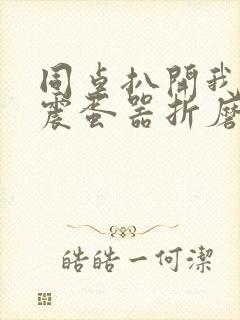 同桌扒開我
震蛋器折磨
皓皓一何潔